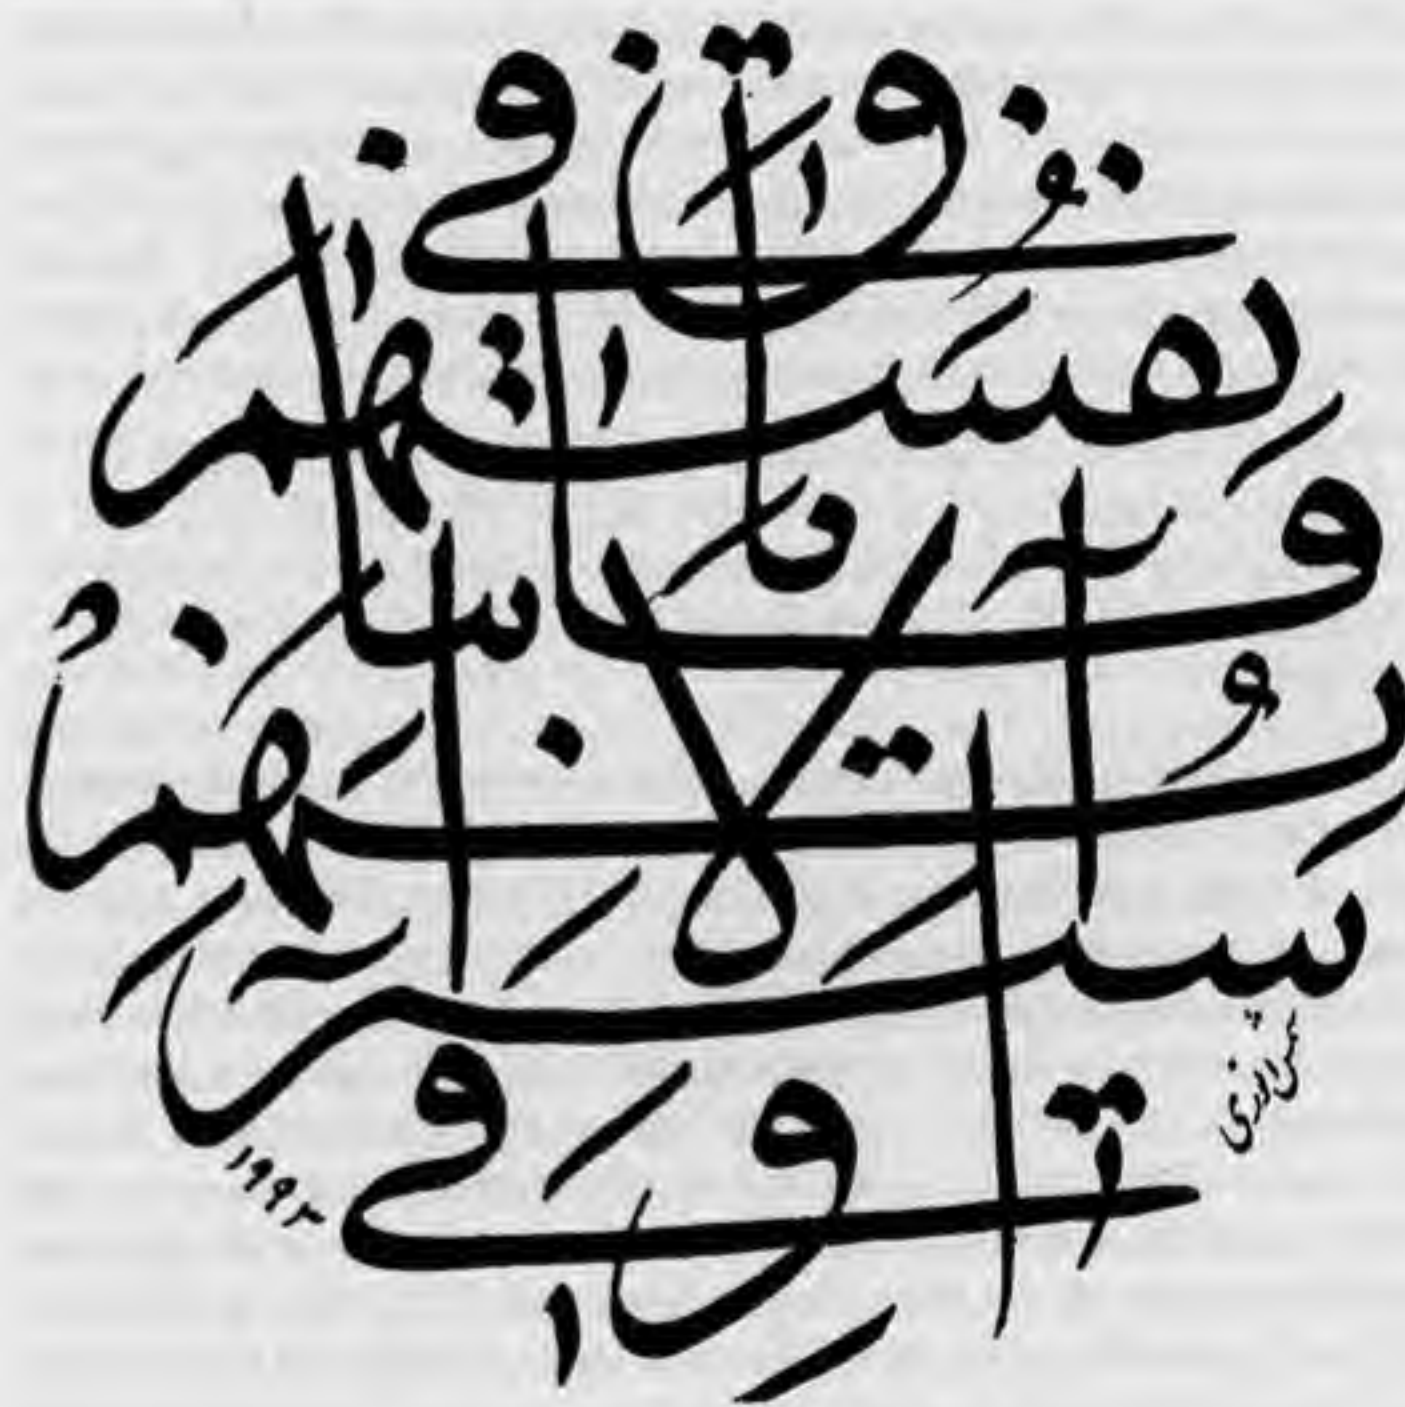 سَنُرِيهِمْ آيَاتِنَا فِي الْآفَاقِ وَفِي أَنْفُسِهِمْ
١٩٩٣